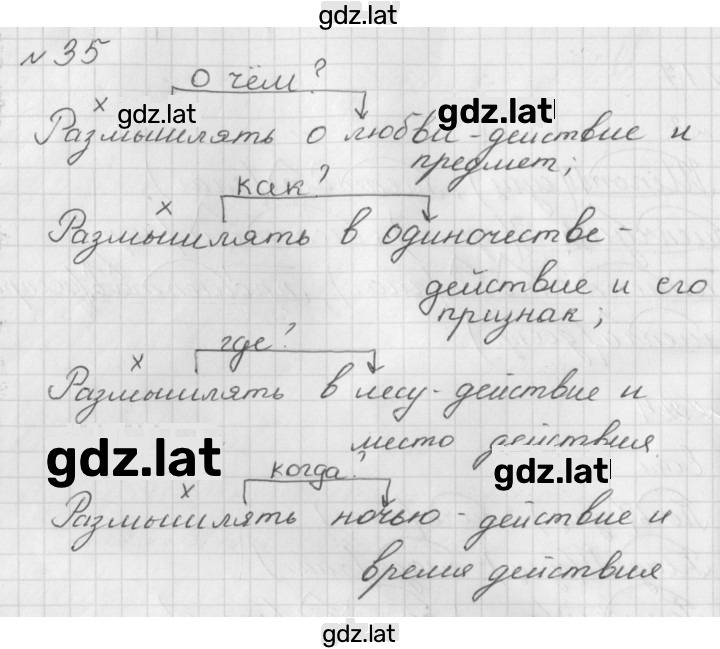 gdz.lat
№ 35
о чём?
х
gdz.lat
gdz.lat
Размышлять о любви - действие и
предмет;
как?
х
Размышлять в одиночестве -
действие и его
признак;
где?
х
Размышлять в лесу - действие и
место действия
gdz.lat
gdz.lat
когда?
х
Размышлять ночью - действие и
время действия
gdz.lat